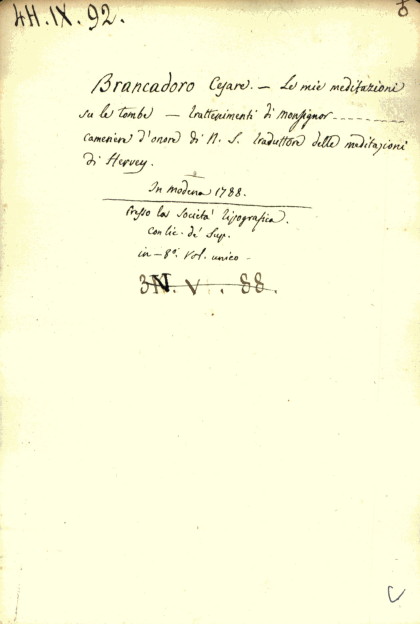 4H.IX.92.
Brancadoro Cesare. — Le mie meditazioni
su le tombe — trattenimenti di monsignor ----------
cameriere d'onore di N. S. traduttore delle meditazioni
di Hervey.
In modena 1788.
Presso la Società tipografica.
con lic. de' Sup.
in - 8º. Vol. unico -
3N. V. 88.